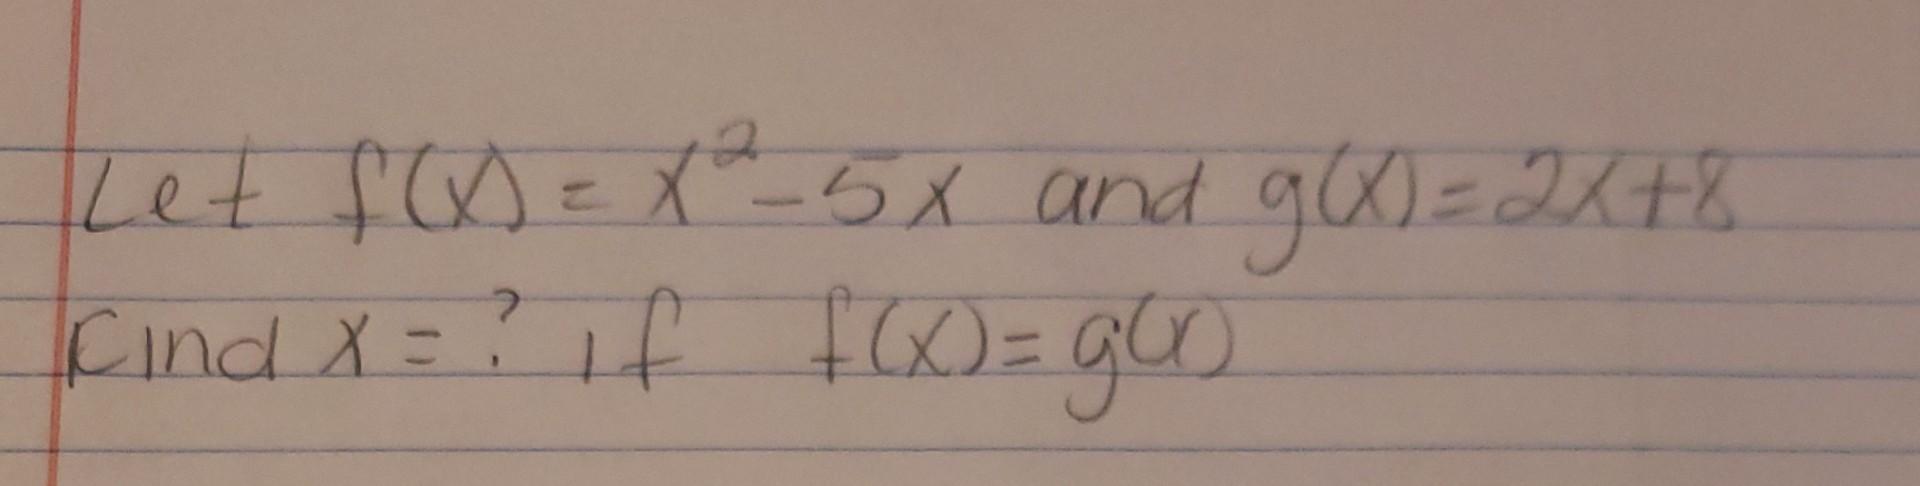 Let f(x) = x² - 5x and g(x) = 2x+8
Find x = ? if f(x) = g(x)